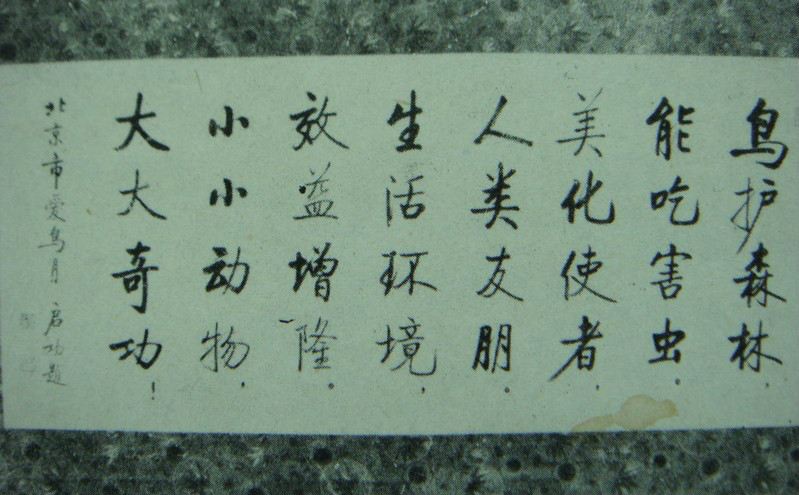 鸟护森林，
能吃害虫。
美化使者，
人类友朋。
生活环境，
效益增隆。
小小动物，
大大奇功！
北京市爱鸟月 启功题